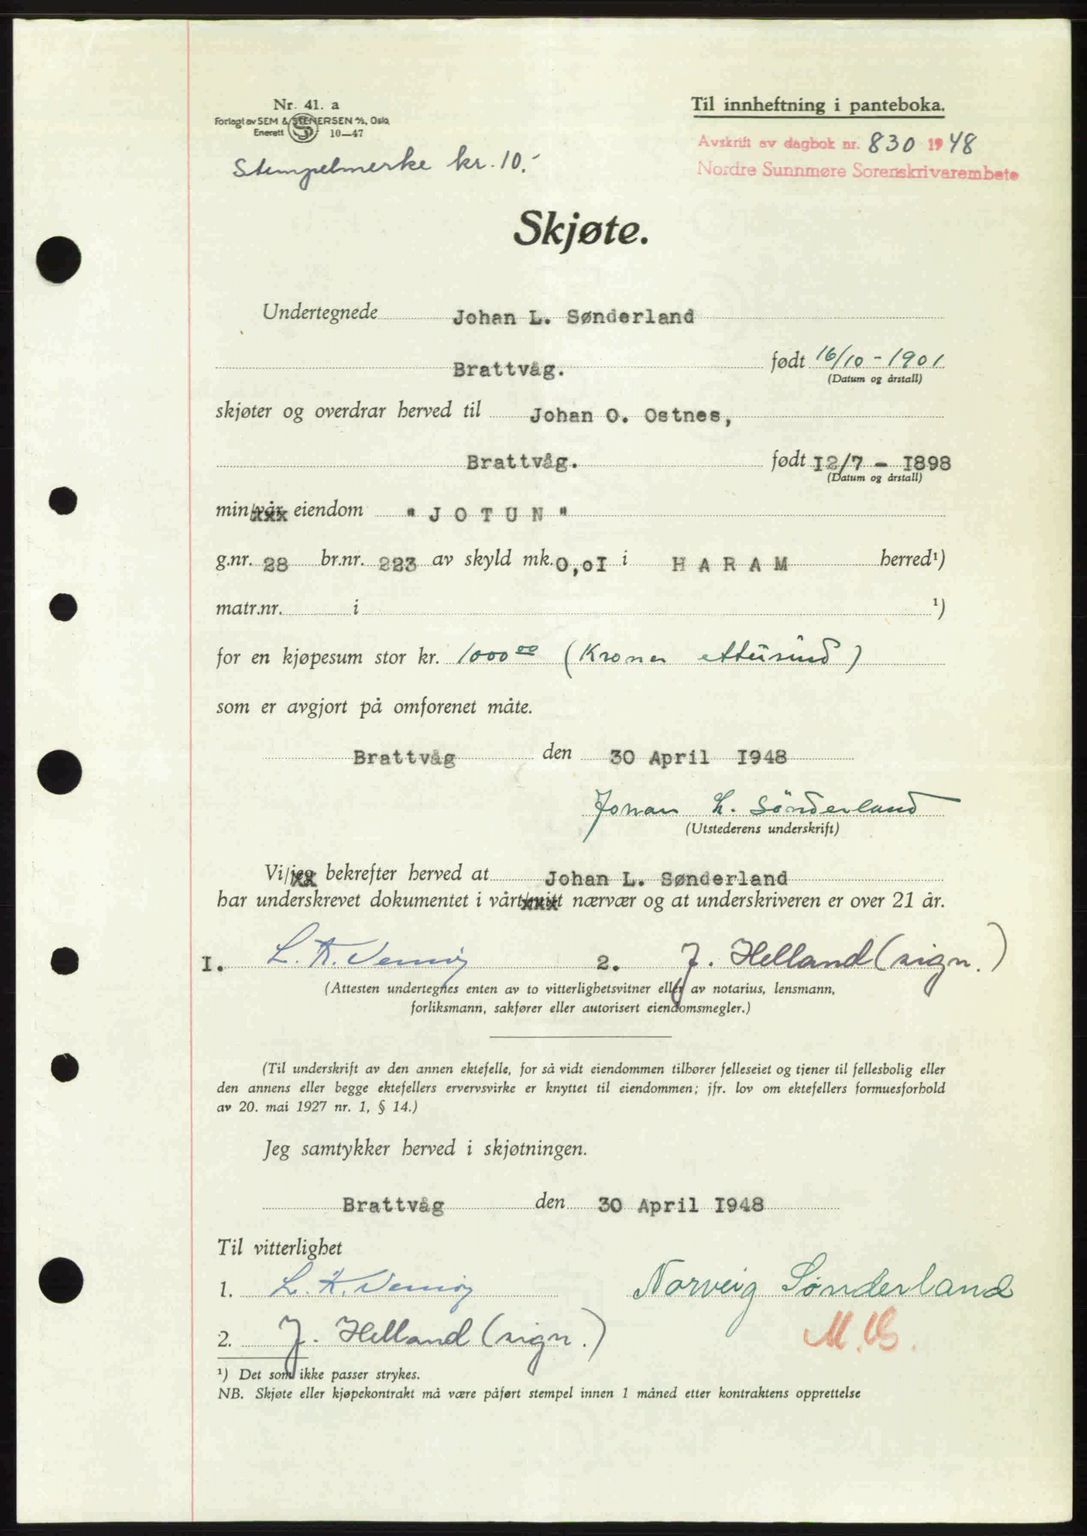 Nr. 41. a
Forlagt av SEM & STENERSEN A/S, Oslo
Enerett 10—47
Til innheftning i panteboka.
Avskrift av dagbok nr. 830 1948
Nordre Sunnmøre Sorenskrivarembete
Stempelmerke kr. 10.-
Skjøte.
Undertegnede Johan L. Sønderland
Brattvåg. født 16/10 - 1901
(Datum og årstall)
skjøter og overdrar herved til Johan O. Ostnes,
Brattvåg. født I2/7 - I898
(Datum og årstall)
min/vår eiendom "JOTUN"
g.nr. 28 br.nr. 223 av skyld mk. 0,oI i HARAM herred¹)
matr.nr. i ¹)
for en kjøpesum stor kr. 1000 00 (Kroner ettusind)
som er avgjort på omforenet måte.
Brattvåg den 30 April I948
Johan L. Sönderland
(Utstederens underskrift)
Vi/jeg bekrefter herved at Johan L. Sønderland
har underskrevet dokumentet i vårt/mitt nærvær og at underskriveren er over 21 år.
I. L. K. 2. J. Helland (sign.)
(Attesten undertegnes enten av to vitterlighetsvitner eller av notarius, lensmann,
forliksmann, sakfører eller autorisert eiendomsmegler.)
(Til underskrift av den annen ektefelle, for så vidt eiendommen tilhører felleseiet og tjener til fellesbolig eller
den annens eller begge ektefellers ervervsvirke er knyttet til eiendommen; jfr. lov om ektefellers formuesforhold
av 20. mai 1927 nr. 1, § 14.)
Jeg samtykker herved i skjøtningen.
Brattvåg den 30 April I948
Til vitterlighet
1. L. K. Norveig Sønderland
2. J. Helland (sign.)
¹) Det som ikke passer strykes.
NB. Skjøte eller kjøpekontrakt må være påført stempel innen 1 måned etter kontraktens opprettelse